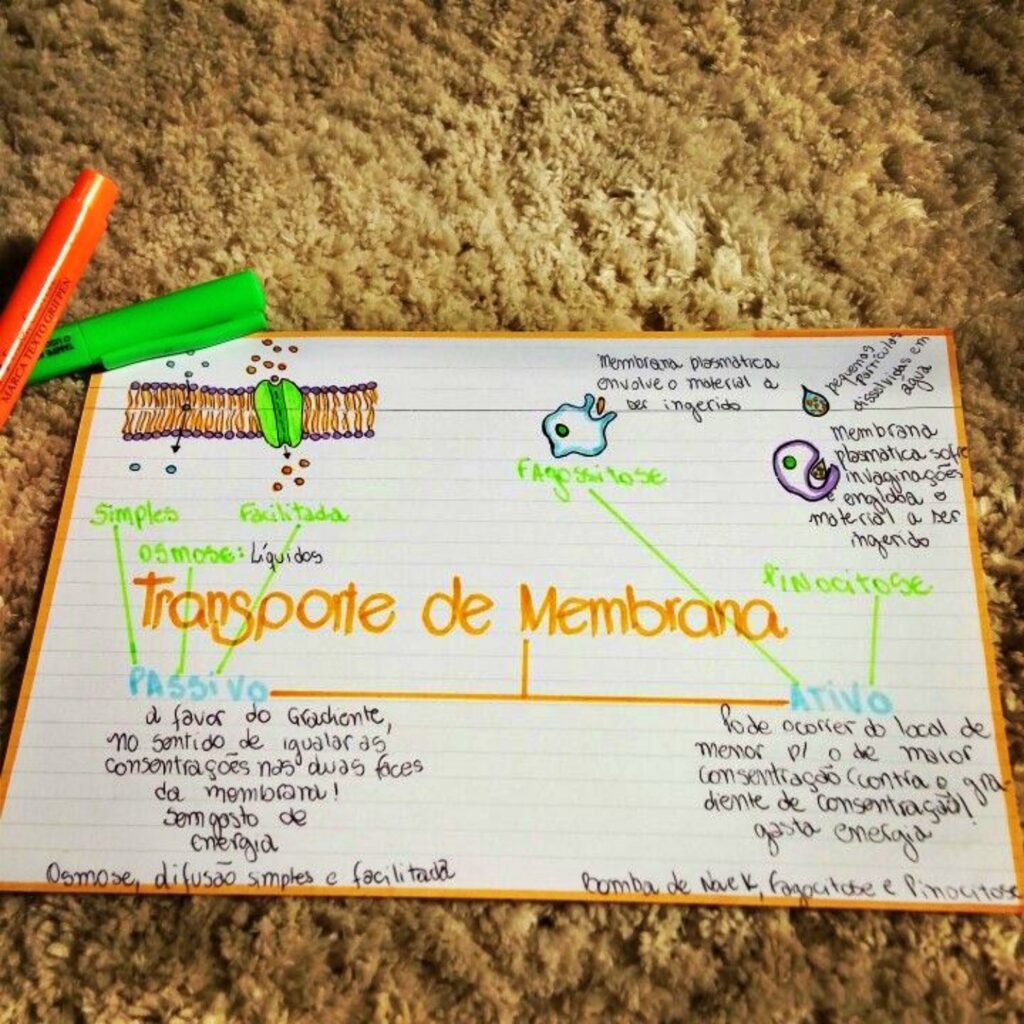 MARCA TEXTO GRIFPEN
membrana plasmática
envolve o material a
ser ingerido
pequenas
partículas
dissolvidas em
água
FAgossitose
membrana
plasmática sofre
invaginações
e engloba o
material a ser
ingerido
Simples
Facilitada
OSMOSE: Líquidos
PiNOCitOSE
Transporte de Membrana
PASSiVO
ATiVO
a favor do Gradiente,
no sentido de igualar as
consentrações nas duas faces
da membrana!
Sem gasto de
energia
Osmose, difusão simples e facilitada
Pode ocorrer do local de
menor p/ o de maior
consentração (contra o gra-
diente de consentração)!
gasta energia
Bomba de Na e K, Fagocitose e Pinocitose